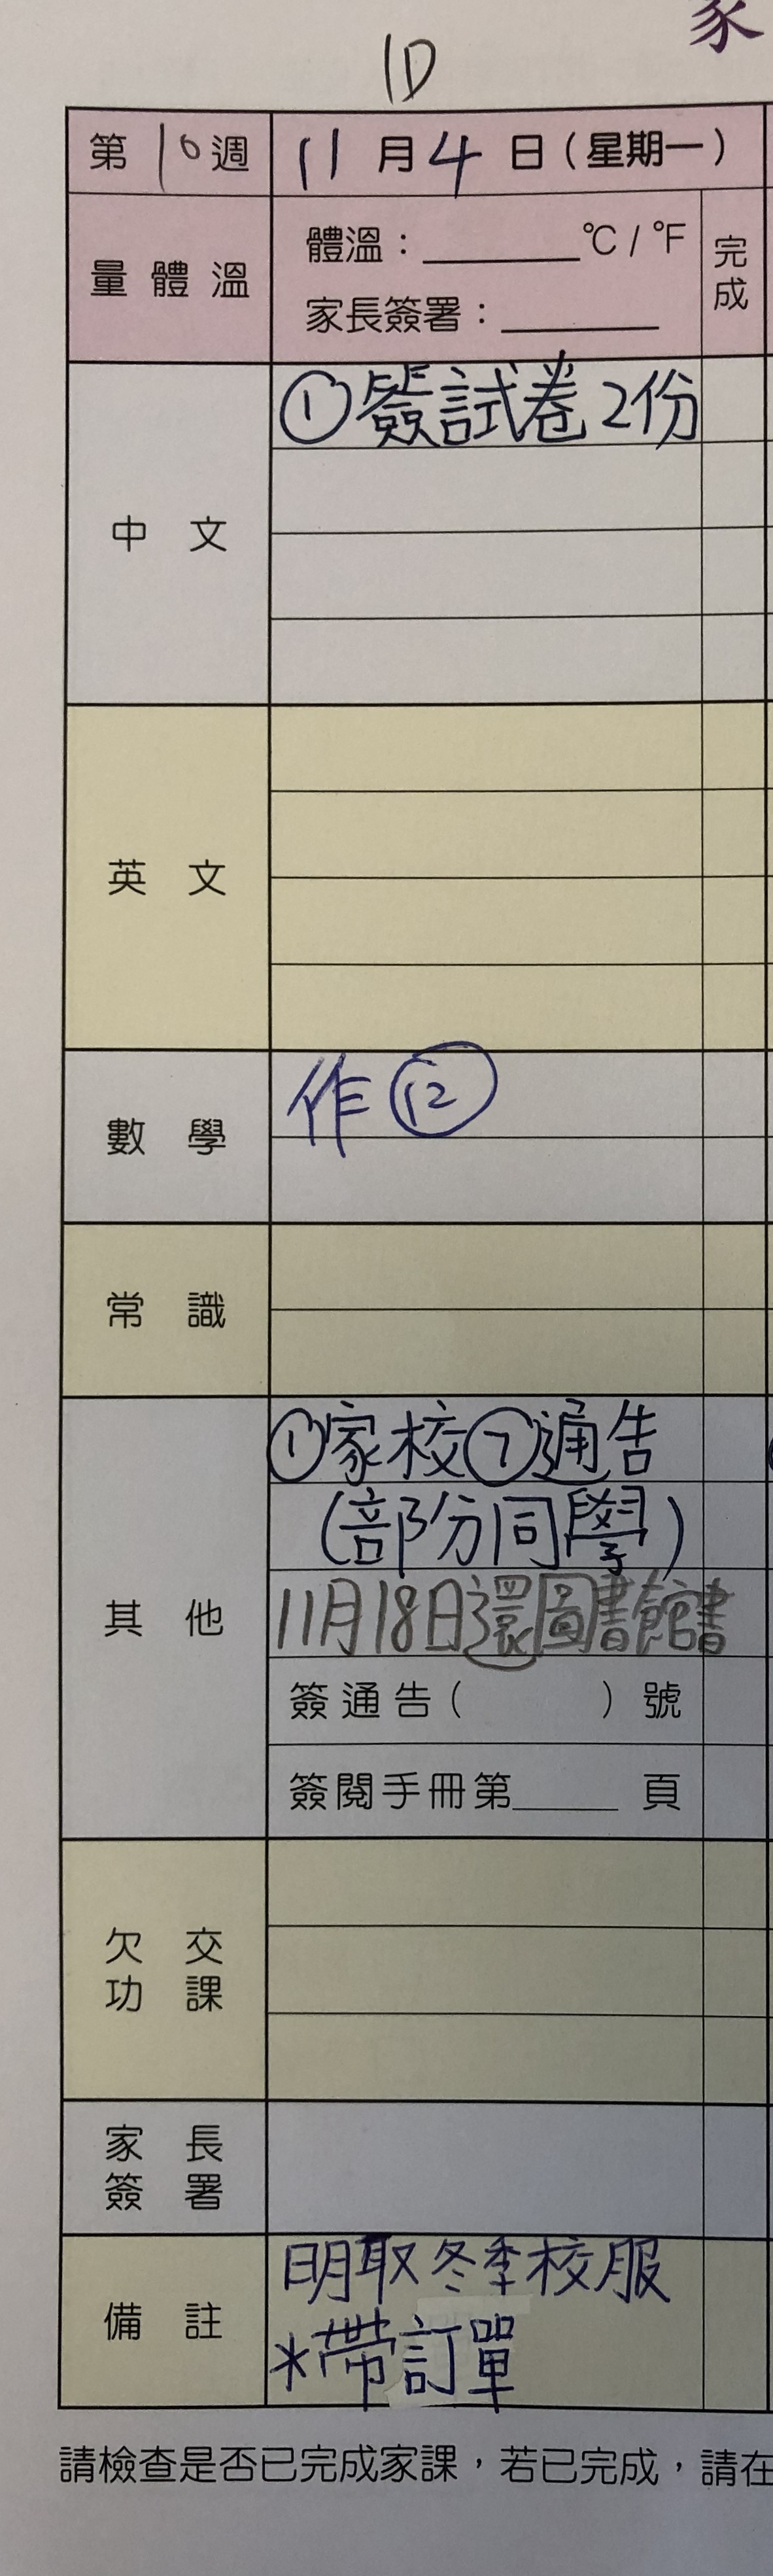 家
1D
第10週 11月4日(星期一)
量體溫 體溫:______℃/℉ 完成
家長簽署:______
中文 ①簽試卷2份
英文
數學 作⑫
常識
其他 ①家校⑦通告
(部分同學)
11月18日還圖書館書
簽通告( )號
簽閱手冊第____頁
欠交功課
家長簽署
備註 明取冬季校服
*帶訂單
請檢查是否已完成家課,若已完成,請在